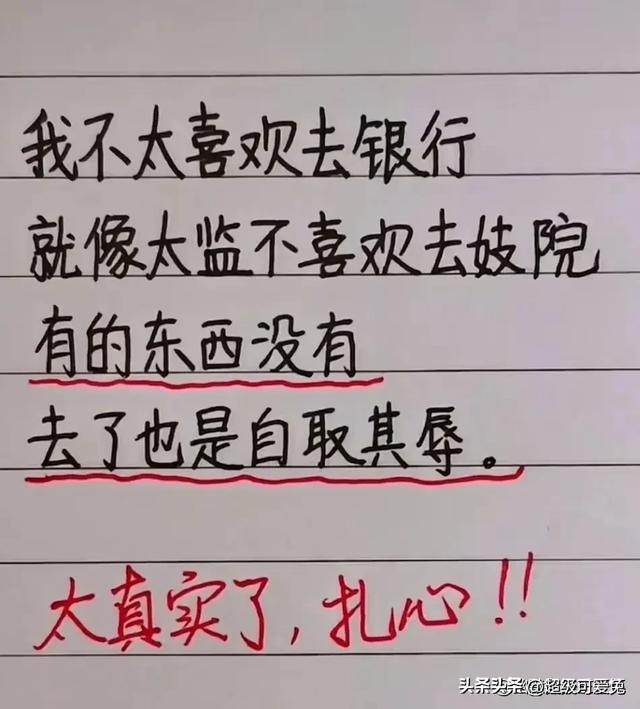 我不太喜欢去银行
就像太监不喜欢去妓院
有的东西没有
去了也是自取其辱。
太真实了,扎心!!
头条头条@超级可爱兔